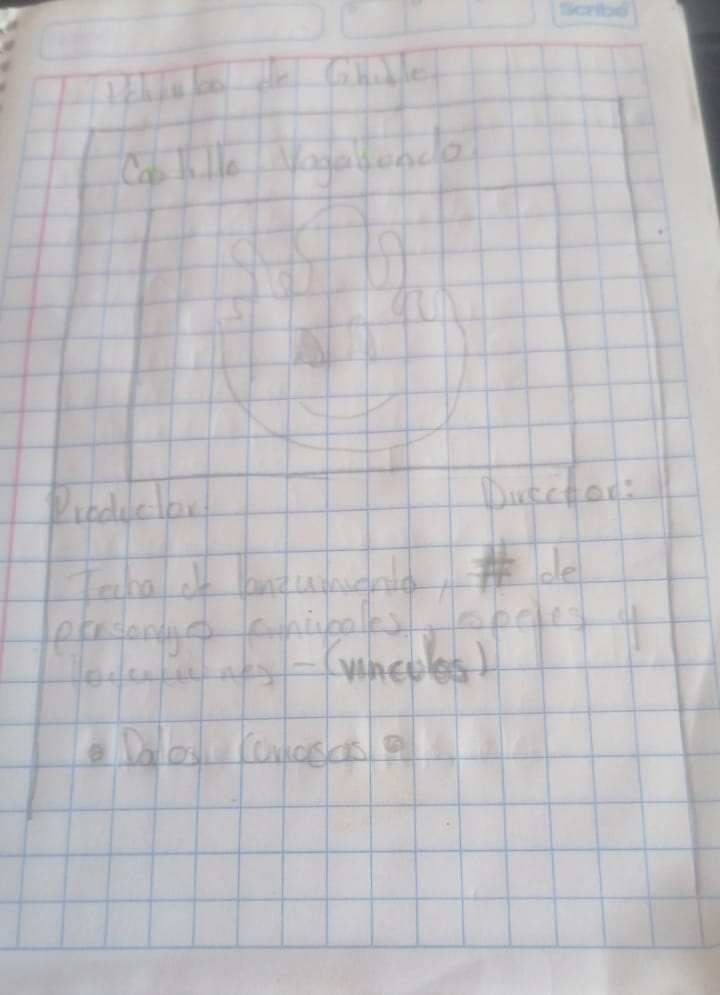 Scribe
Peliculas de Ghible
Castillo Vagabundo
Productor: Director:
Fecha de lanzamiento, # de
personajes principales, y
locaciones - (vinculos)
• Datos Curiosos •